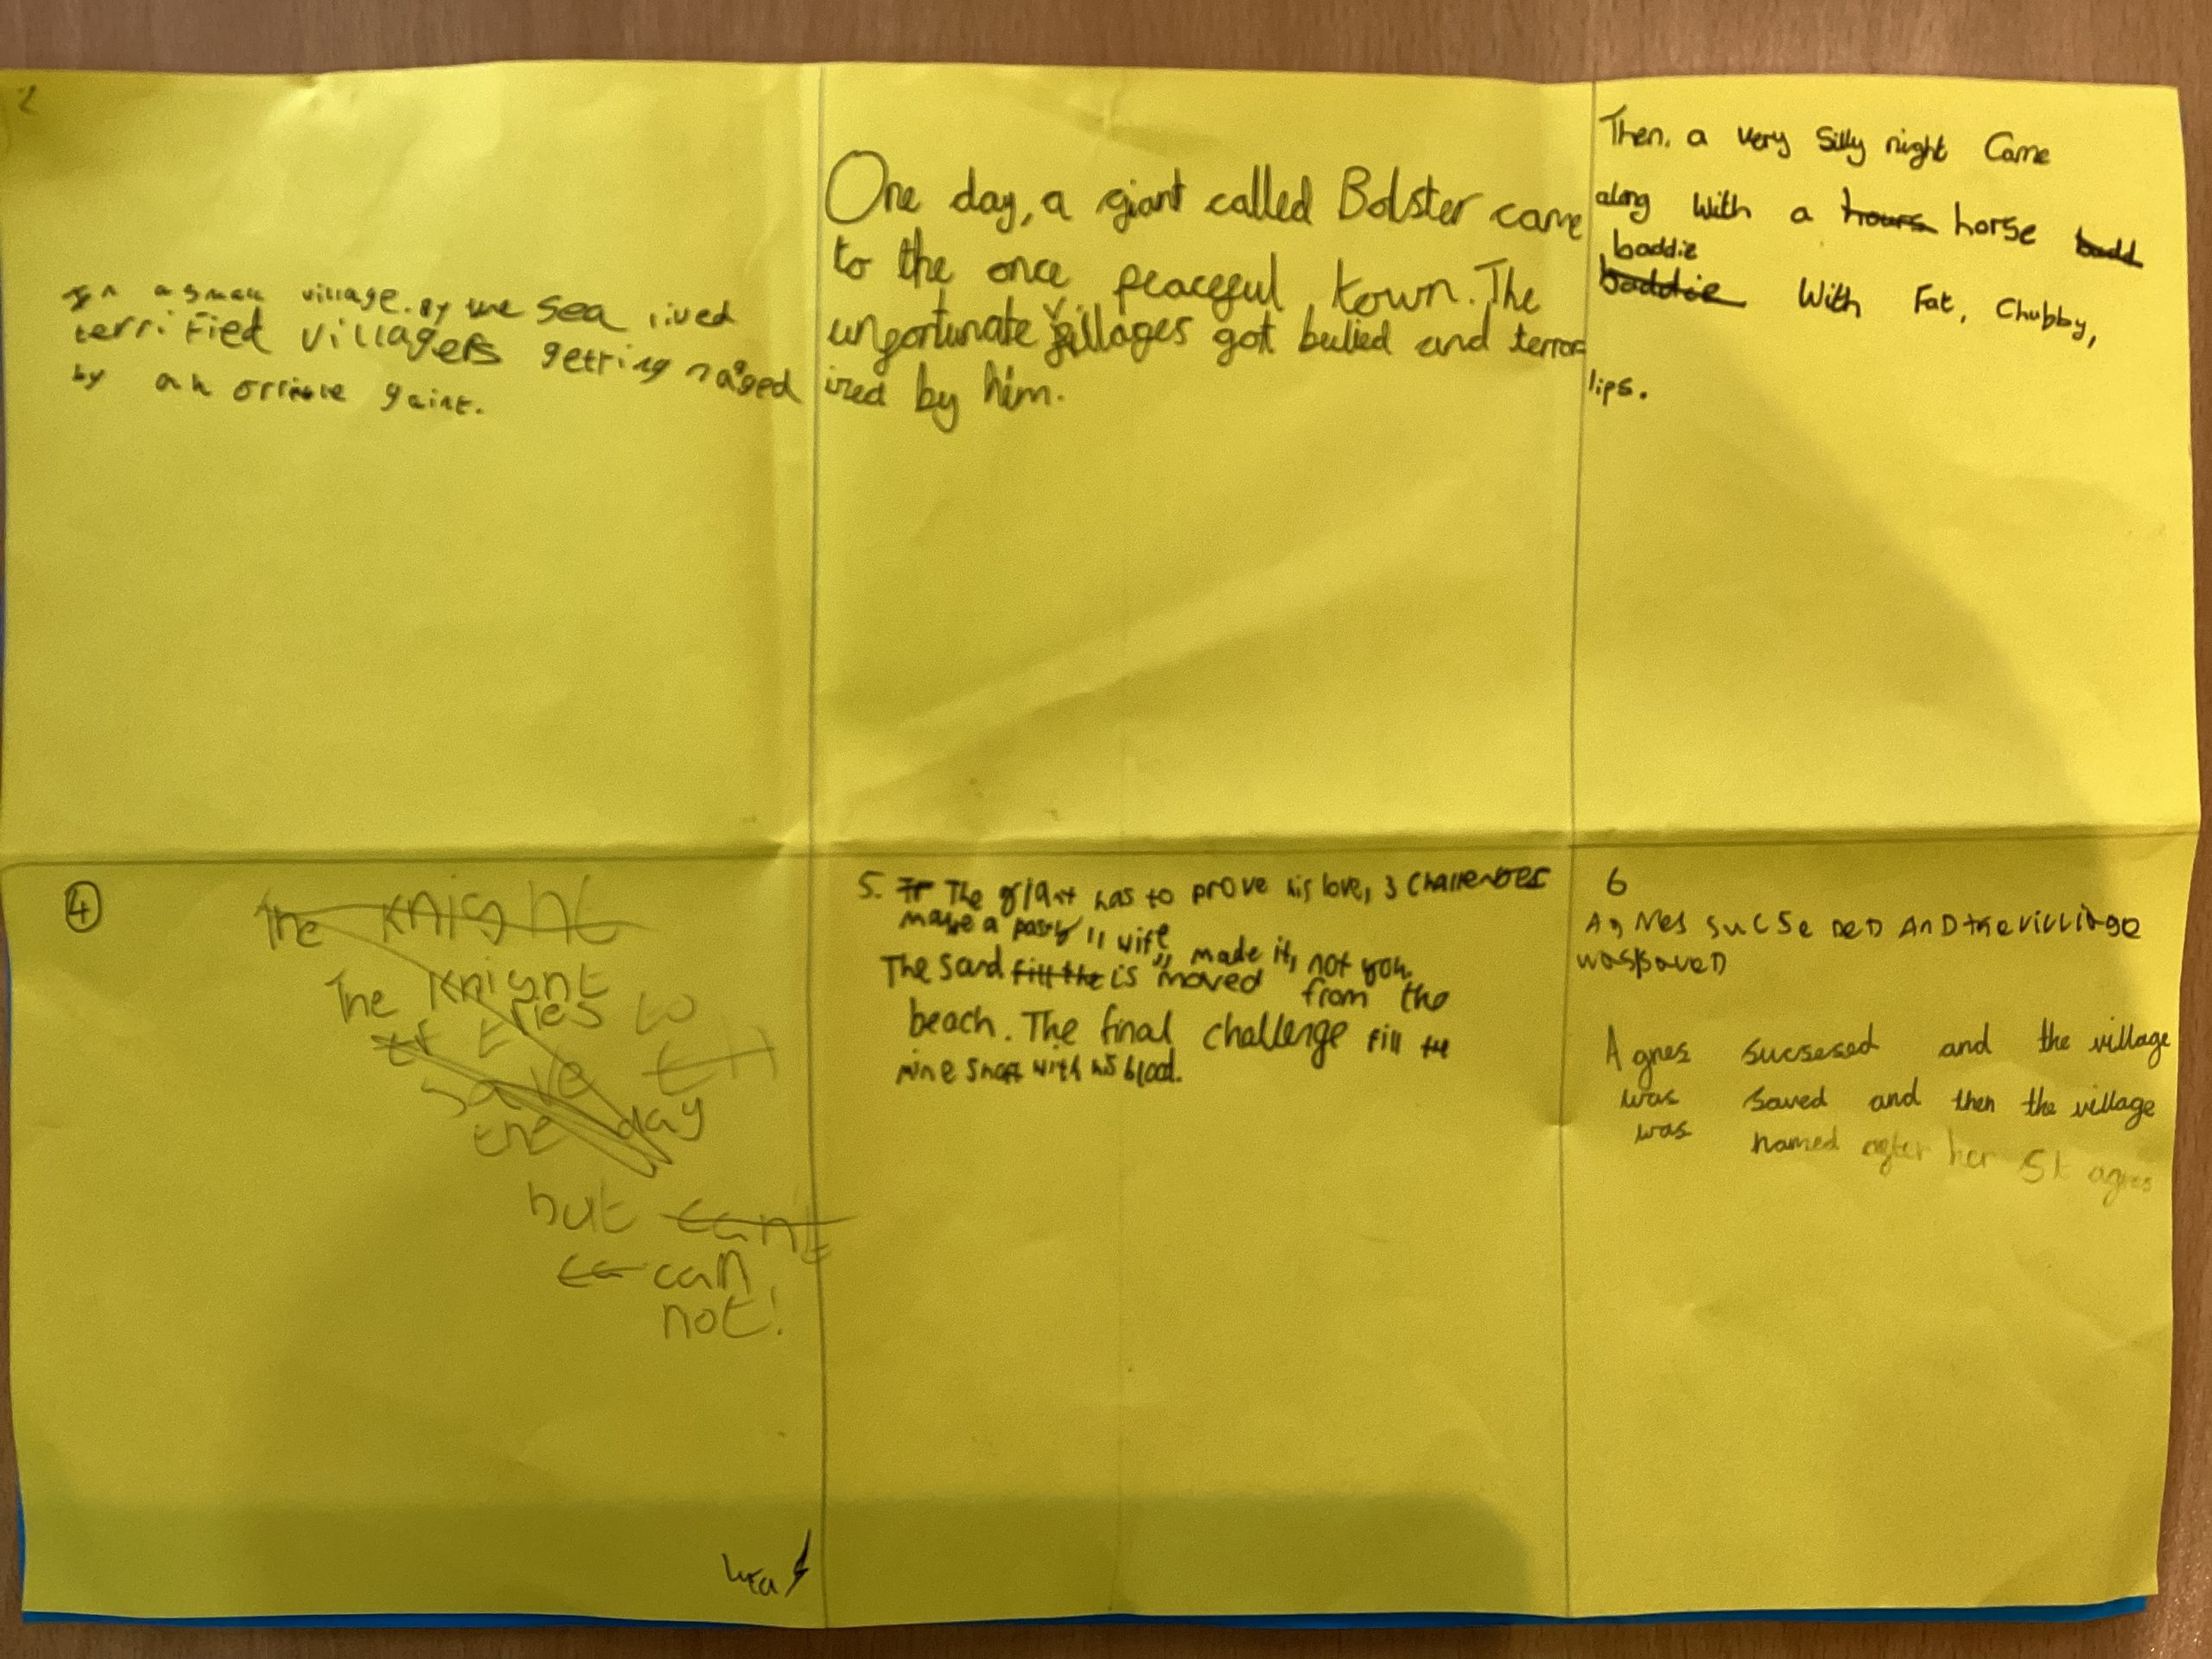 In a small village. By the sea lived
terrified villagers getting naged
by an orrible gaint.
One day, a giant called Bolster came
to the once peaceful town. The
unfortunate villages got bullied and terror
ized by him.
Then, a very Silly night Came
along With a hours horse badd
baddie
baddie With Fat, Chubby,
lips.
4
The Knight
The Knight
tries to
save tH
the day
but cant
ca can
not!
5. The giant has to prove his love, 3 Challenges
make a pasty " wife,, made it, not you.
The Sand fill the is moved from the
beach. The final challenge fill the
mine shaft with his blood.
6
AgNes SuCSeDeD AnD the villiage
was saveD
Agnes sucsesed and the village
was saved and then the village
was named after her St agnes